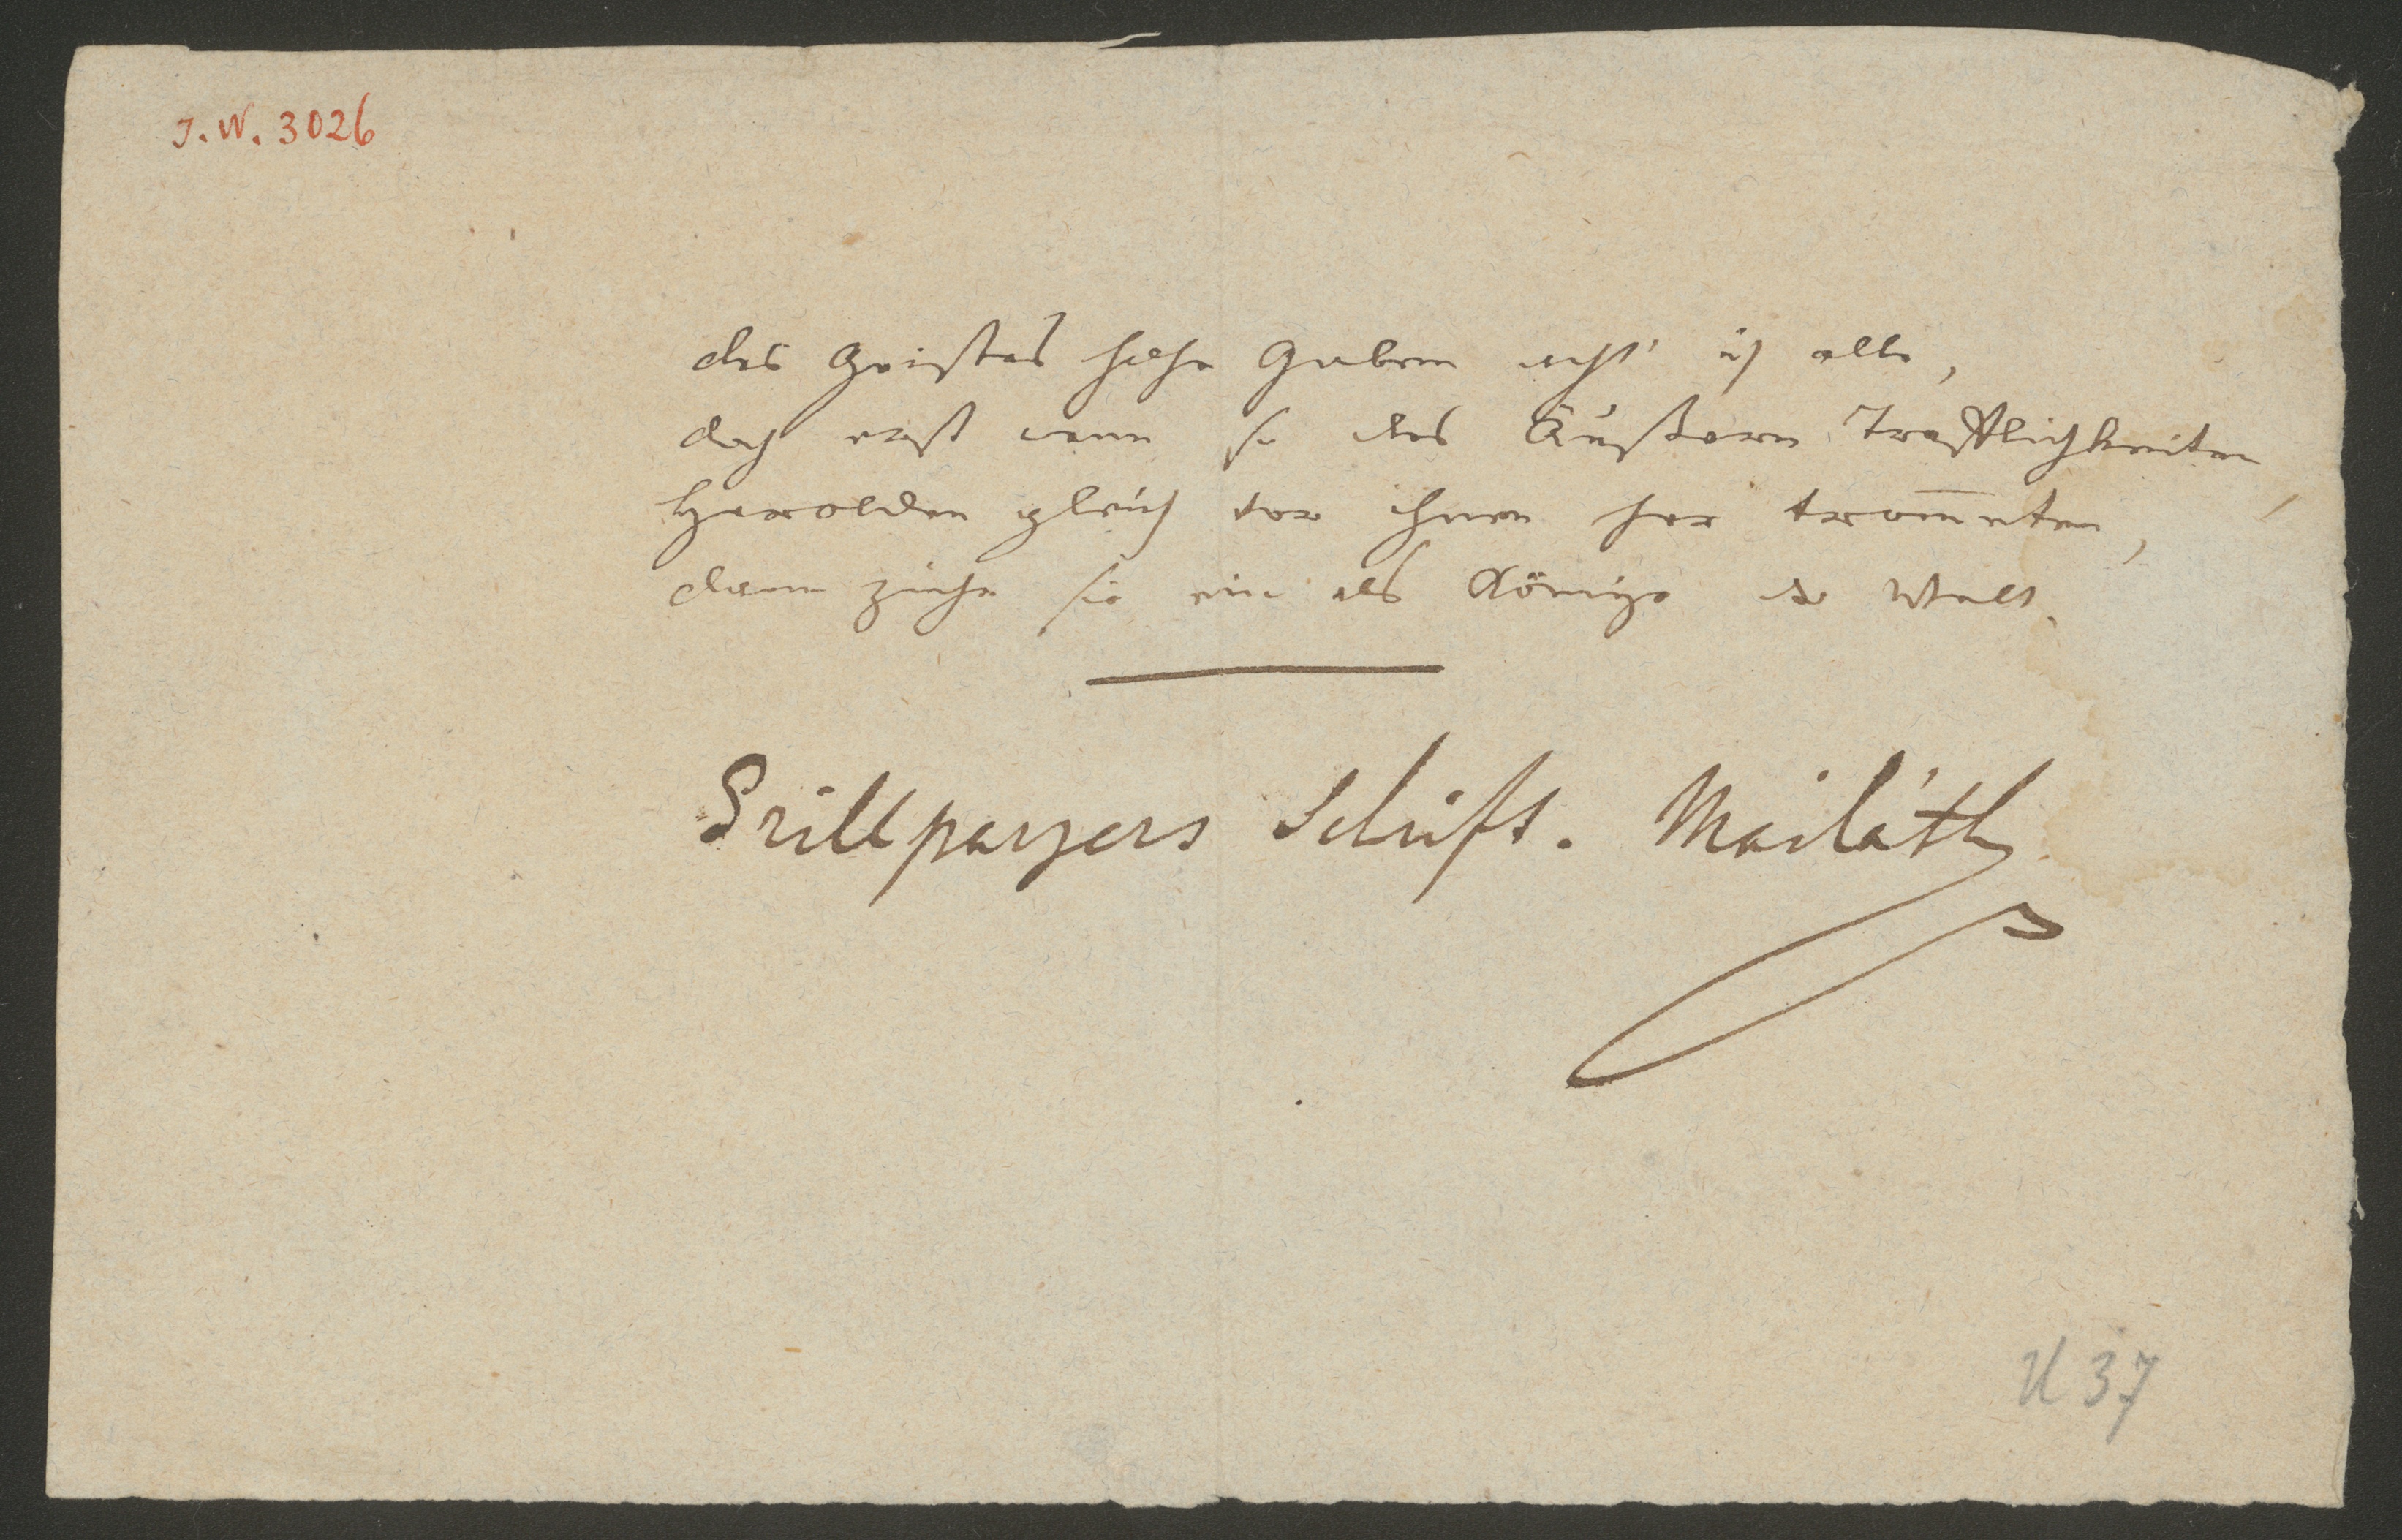 J. N. 3026
des Geistes hohe Gaben acht' ich alle,
doch erst wenn so des Äußern Trefflichkeiten,
Herolden gleich vor ihnen her trom̅eten,
dann ziehn sie ein als Könige der Welt.
Grillparzers Schrift. Mailáth
U 37